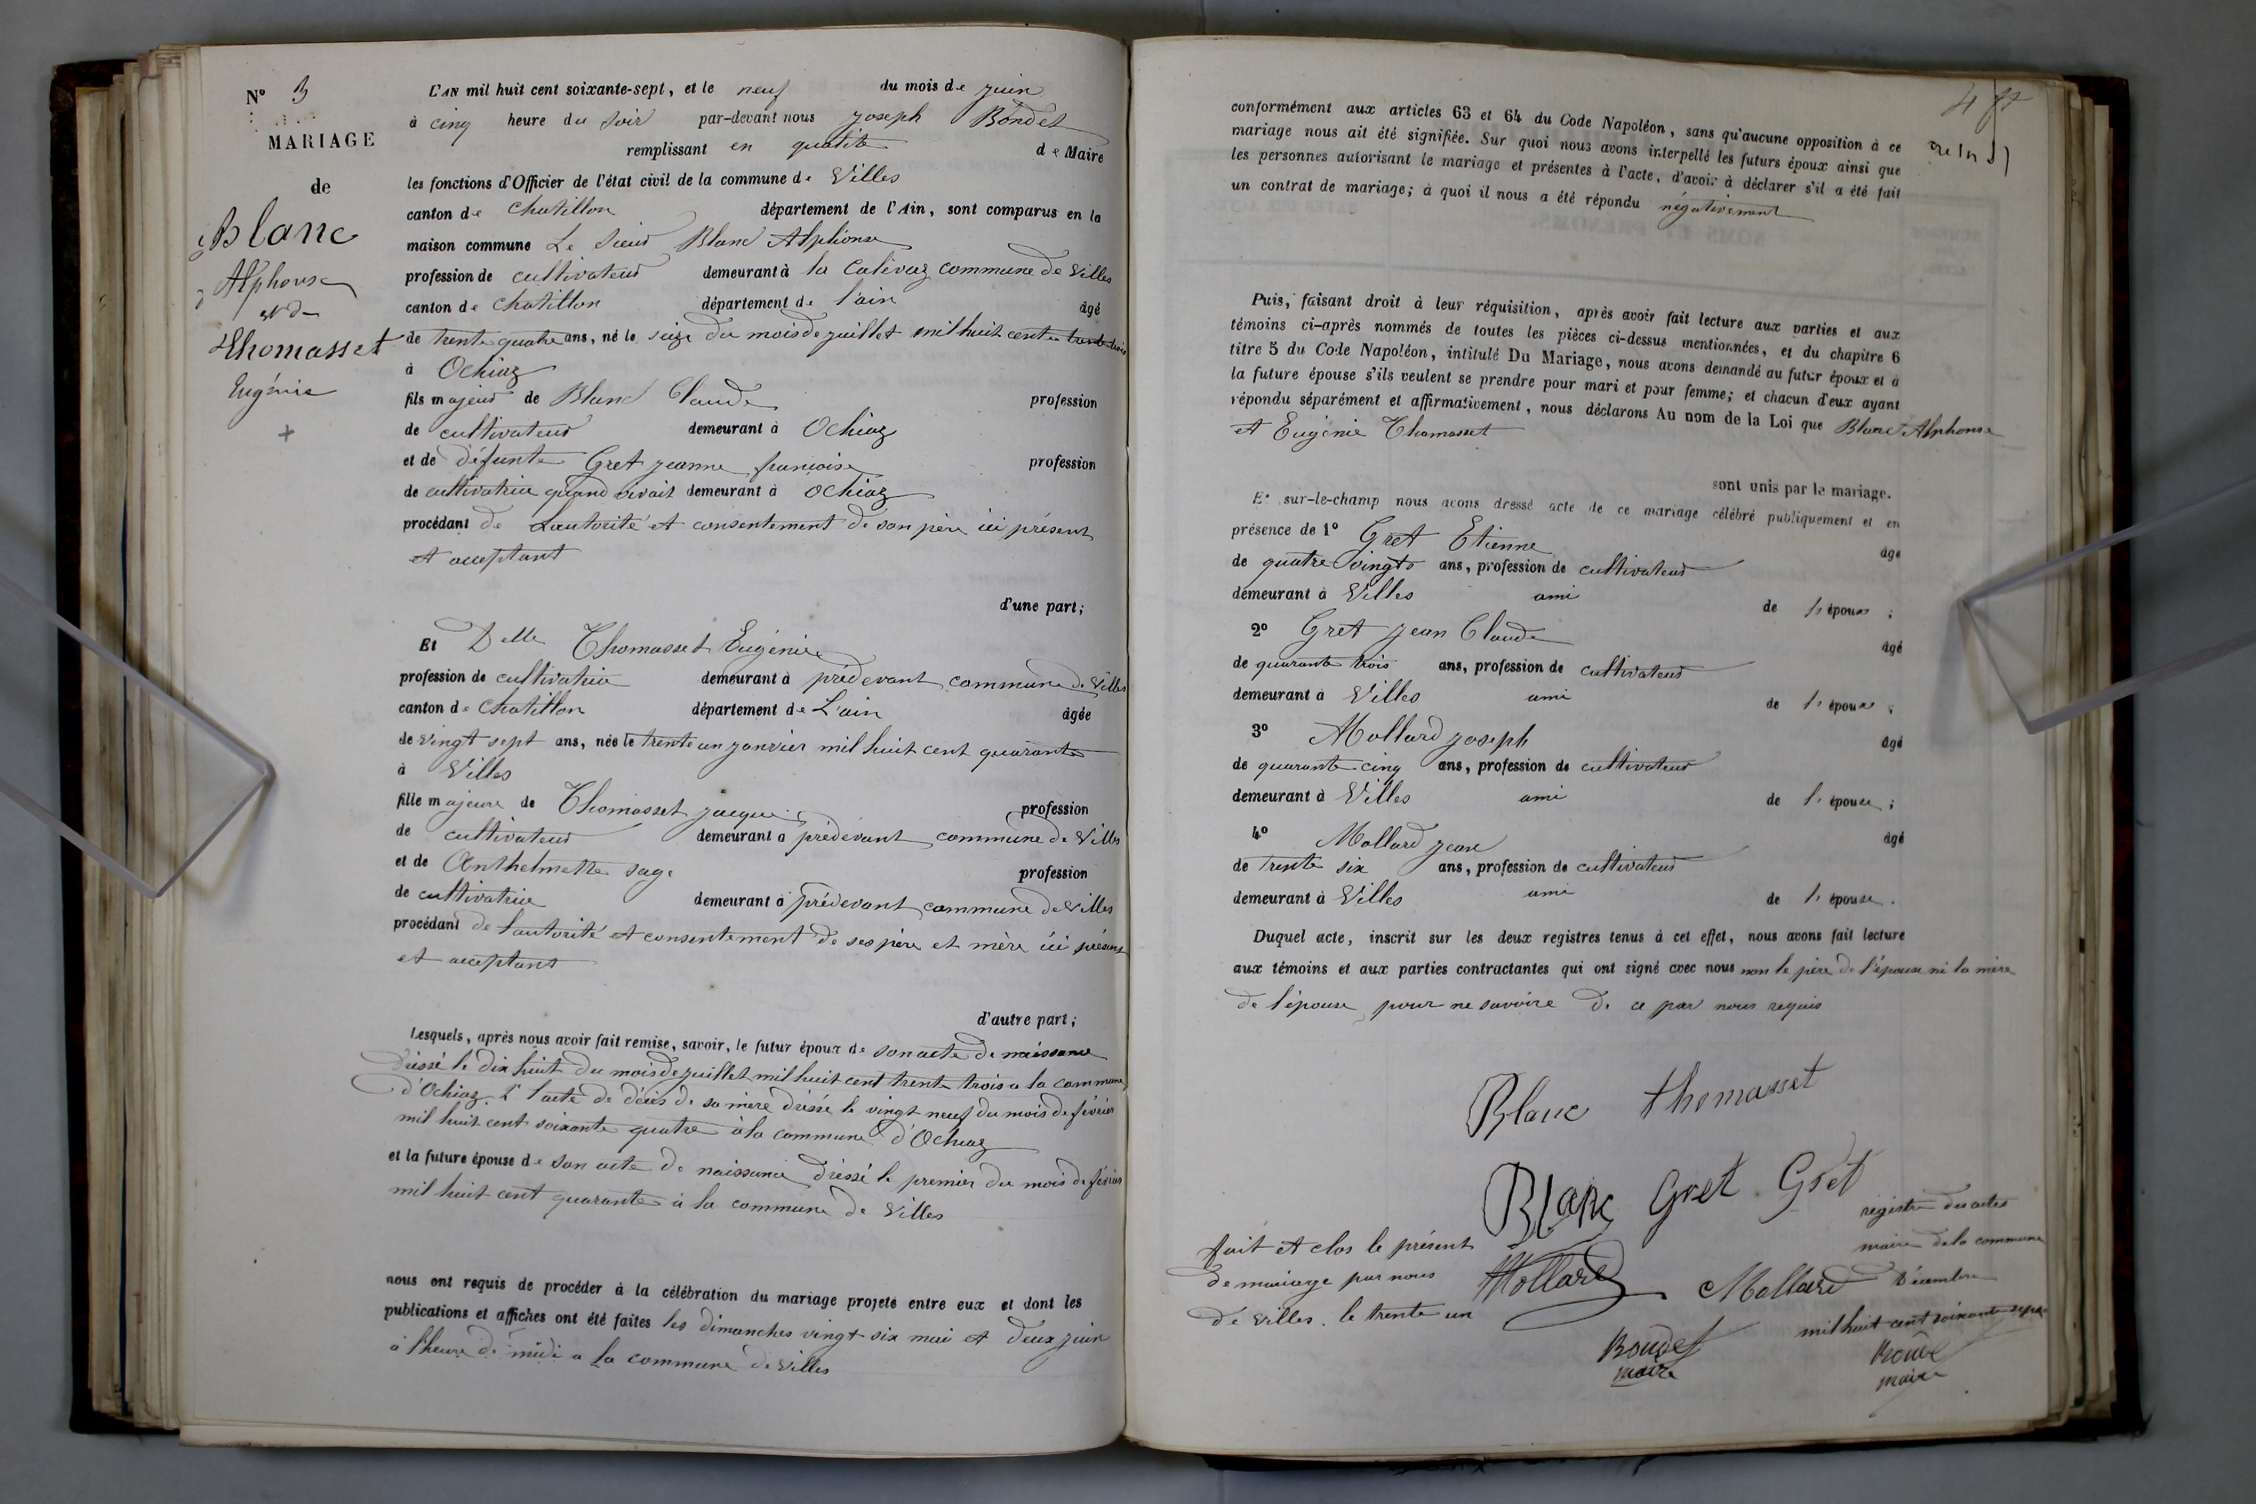 N° 3
MARIAGE
de
Blanc
Alphonse
et de
Thomasset
Eugénie
L'AN mil huit cent soixante-sept, et le neuf du mois de juin
à cinq heure du soir par-devant nous Joseph Bondet
remplissant en qualité de Maire
les fonctions d'Officier de l'état civil de la commune de Villes
canton de Chatillon département de l'Ain, sont comparus en la
maison commune Le Sieur Blanc Alphonse
profession de cultivateur demeurant à la Calévaz commune de Villes
canton de Chatillon département de l'ain âgé
de trente quatre ans, né le seize du mois de juillet mil huit cent trente trois
à Ochiaz
fils majeur de Blanc Claude profession
de cultivateur demeurant à Ochiaz
et de défunte Gret jeanne françoise profession
de cultivatrice quand vivait demeurant à Ochiaz
procédant de L'autorité et consentement de son père ici présent
et acceptant
d'une part;
Et Delle Thomasset Eugénie
profession de cultivatrice demeurant à prédevant commune de Villes
canton de Chatillon département de L'ain âgée
de vingt sept ans, née le trente un janvier mil huit cent quarante
à Villes
fille majeure de Thomasset jacques profession
de cultivateur demeurant à prédevant commune de Villes
et de Anthelmette Sage profession
de cultivatrice demeurant à prédevant commune de Villes
procédant de l'autorité et consentement de ses père et mère ici présents
et acceptant
d'autre part;
Lesquels, après nous avoir fait remise, savoir, le futur époux de son acte de naissance
dréssé le dix huit du mois de juillet mil huit cent trente trois a la commune
d'Ochiaz 2° l'acte de décès de sa mère dréssé le vingt neuf du mois de février
mil huit cent soixante quatre à la commune d'Ochiaz
et la future épouse de son acte de naissance dréssé le premier du mois de février
mil huit cent quarante à la commune de Villes
nous ont requis de procéder à la célébration du mariage projeté entre eux et dont les
publications et affiches ont été faites les dimanches vingt six mai et deux juin
à l'heure de midi a la commune de Villes
conformément aux articles 63 et 64 du Code Napoléon, sans qu'aucune opposition à ce
mariage nous ait été signifiée. Sur quoi nous avons interpellé les futurs époux ainsi que
les personnes autorisant le mariage et présentes à l'acte, d'avoir à déclarer s'il a été fait
un contrat de mariage; à quoi il nous a été répondu négativement
Puis, faisant droit à leur réquisition, après avoir fait lecture aux parties et aux
témoins ci-après nommés de toutes les pièces ci-dessus mentionnées, et du chapitre 6
titre 5 du Code Napoléon, intitulé Du Mariage, nous avons demandé au futur époux et à
la future épouse s'ils veulent se prendre pour mari et pour femme; et chacun d'eux ayant
répondu séparément et affirmativement, nous déclarons Au nom de la Loi que Blanc Alphonse
et Eugénie Thomasset
sont unis par le mariage.
Et sur-le-champ nous avons dressé acte de ce mariage célébré publiquement et en
présence de 1° Gret Etienne âgé
de quatre vingts ans, profession de cultivateur
demeurant à Villes ami de l'époux;
2° Gret jean Claude âgé
de quarante trois ans, profession de cultivateur
demeurant à Villes ami de l'époux;
3° Mollard joseph âgé
de quarante cinq ans, profession de cultivateur
demeurant à Villes ami de l'épouse;
4° Mollard jean âgé
de trente six ans, profession de cultivateur
demeurant à Villes ami de l'épouse.
Duquel acte, inscrit sur les deux registres tenus à cet effet, nous avons fait lecture
aux témoins et aux parties contractantes qui ont signé avec nous non le père de l'épouse ni la mère
de l'épouse pour ne savoire de ce par nous requis
Blanc thomasset
Blanc Gret Gret
fait et clos le présent registre des actes
de mariage par nous Mollard Mollard maire de la commune
de Villes. le trente un Décembre
mil huit cent soixante sept
Bondet
maire
Bondet
maire